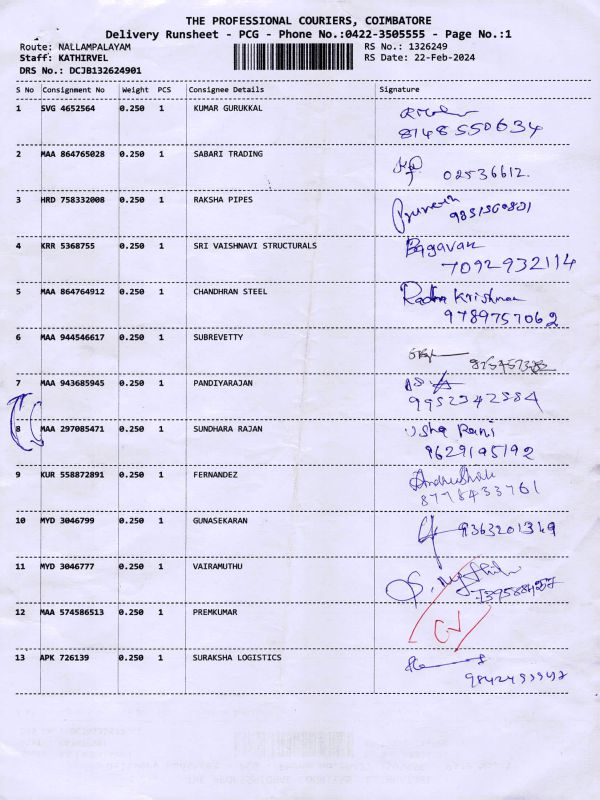 THE PROFESSIONAL COURIERS, COIMBATORE
Delivery Runsheet - PCG - Phone No.:0422-3505555 - Page No.:1
Route: NALLAMPALAYAM RS No.: 1326249
Staff: KATHIRVEL RS Date: 22-Feb-2024
DRS No.: DCJB132624901
S No Consignment No Weight PCS Consignee Details Signature
1 SVG 4652564 0.250 1 KUMAR GURUKKAL
8148550634
2 MAA 864765028 0.250 1 SABARI TRADING
02536612.
3 HRD 758332008 0.250 1 RAKSHA PIPES
4 KRR 5368755 0.250 1 SRI VAISHNAVI STRUCTURALS Bagavan
7092932114
5 MAA 864764912 0.250 1 CHANDHRAN STEEL Radha Krishnan
9789757062
6 MAA 944546617 0.250 1 SUBREVETTY
7 MAA 943685945 0.250 1 PANDIYARAJAN
9952342584
8 MAA 297085471 0.250 1 SUNDHARA RAJAN Usha Rani
9629195192
9 KUR 558872891 0.250 1 FERNANDEZ
8778433761
10 MYD 3046799 0.250 1 GUNASEKARAN 9363201349
11 MYD 3046777 0.250 1 VAIRAMUTHU
12 MAA 574586513 0.250 1 PREMKUMAR
13 APK 726139 0.250 1 SURAKSHA LOGISTICS